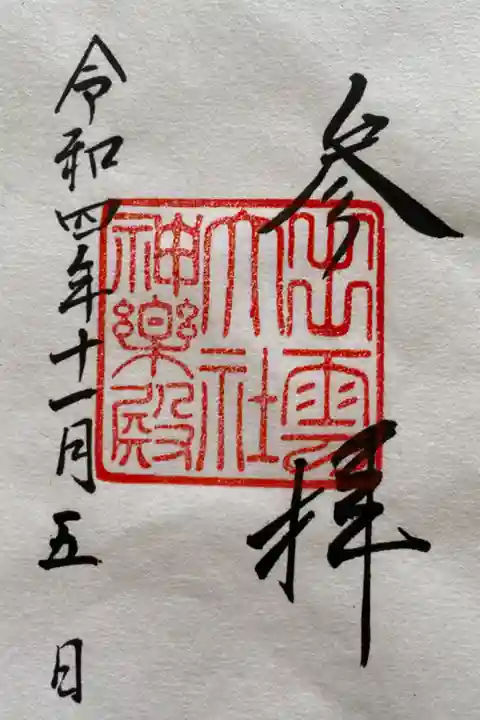 参拝
出雲
大社
神楽殿
令和四年十一月五日